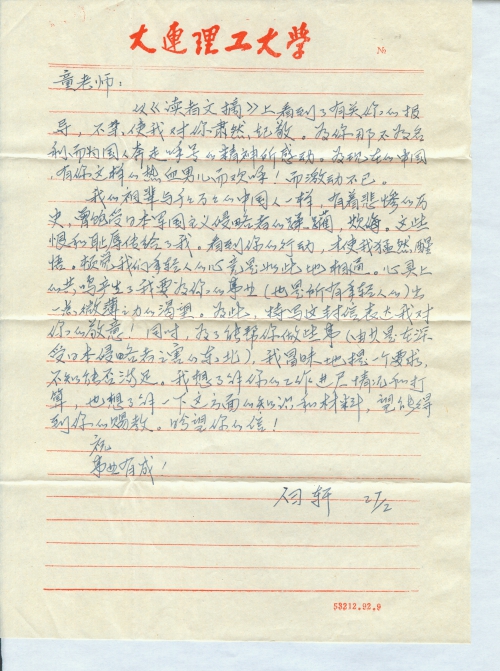 大連理工大学
№
童老师：
从《读者文摘》上看到了有关你的报
导，不禁使我对你肃然起敬。为你那不为名
利而为国人奔走呼号的精神所感动。为现在的中国
有你这样的热血男儿而欢呼！而激动不已。
我的祖辈与千千万万的中国人一样，有着悲惨的历
史，曾饱受日本军国主义侵略者的蹂躏，欺侮。这些
恨和耻辱传给了我。看到你的行动，才使我猛然醒
悟。我们年轻人的心竟是如此地相通。心灵上
的共鸣产生了我要为你的事业（也是所有年轻人的）出
一点微薄之力的渴望。为此，特写这封信表达我对
你的敬意！同时，为了能帮你做些事（尤其是在深
受日本侵略者之害的东北），我冒昧地提一个要求，
不知能否满足。我想了解你的工作进展情况和打
算，也想了解一下这方面的知识和材料，望能得
到你的赐教。盼望你的信！
祝
事业有成！
轩 27/2
53212.92.9